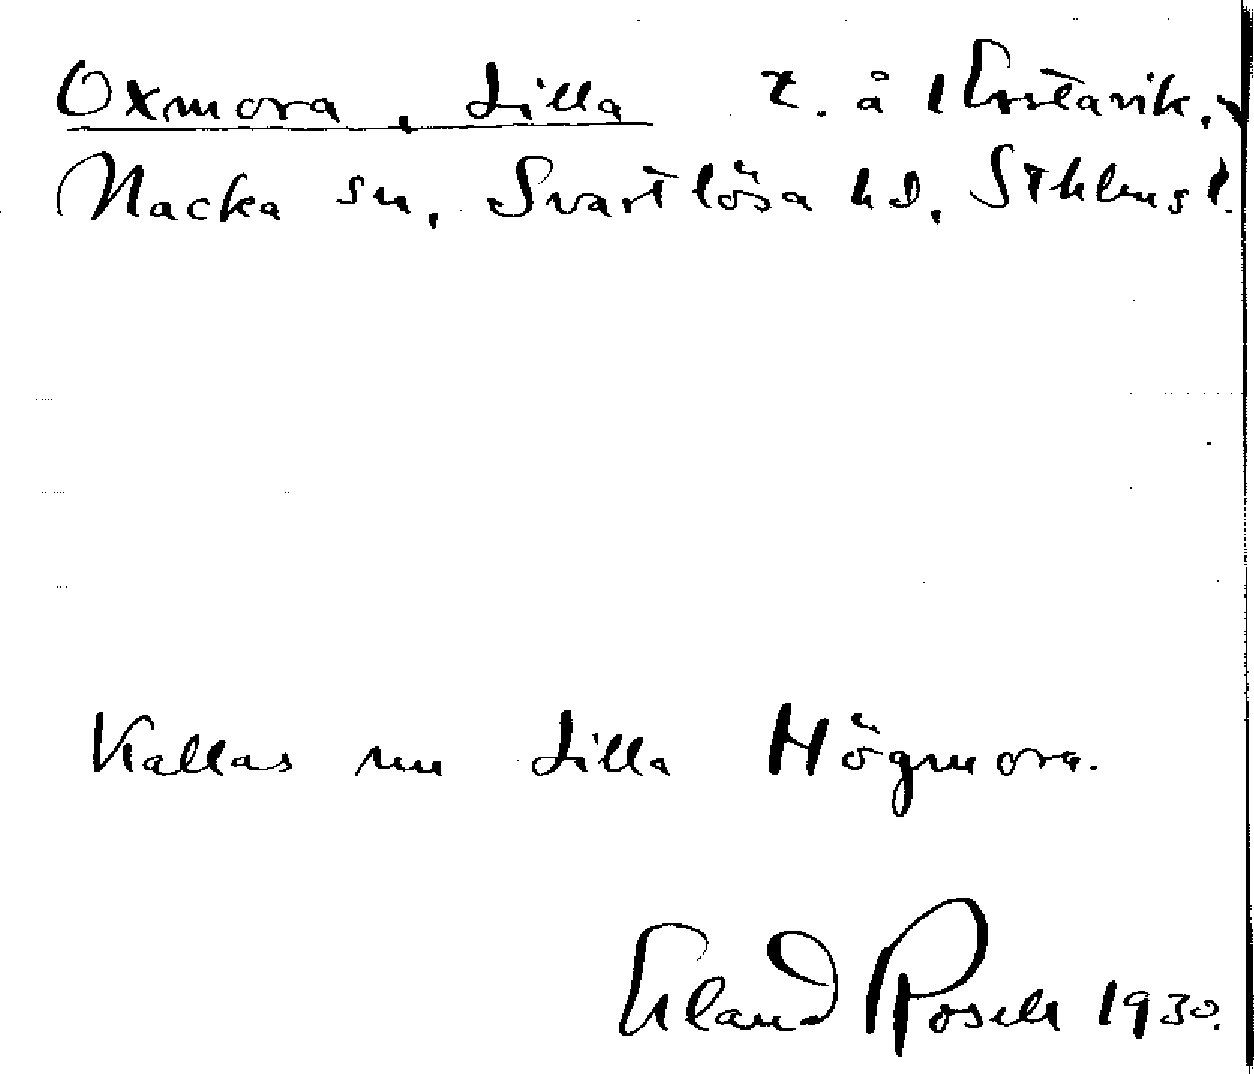 Oxmora, Lilla t. å Erstavik,
Nacka sn, Svartlösa hd, Sthlms l.
Kallas nu Lilla Högmora.
Erland Rosell 1930.